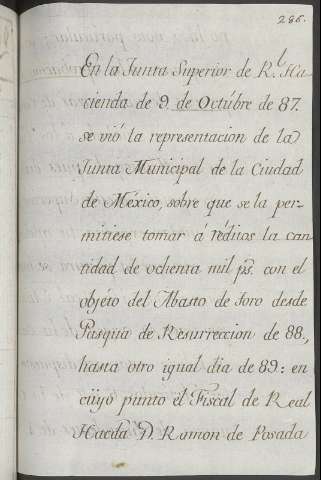 286.
En la Junta Superior de R.l Ha-
cienda de 9 de Octúbre de 87.
se vió la representacion de la
Junta Municipal de la Ciudad
de México, sobre que se la per-
mitiese tomar á réditos la can
tidad de ochenta mil ps. con el
objéto del Abasto de toro desde
Pasqua de Resurreccion de 88.,
hasta otro igual dia de 89: en
cúyo punto el Fiscal de Real
Hacda. D. Ramon de Posada